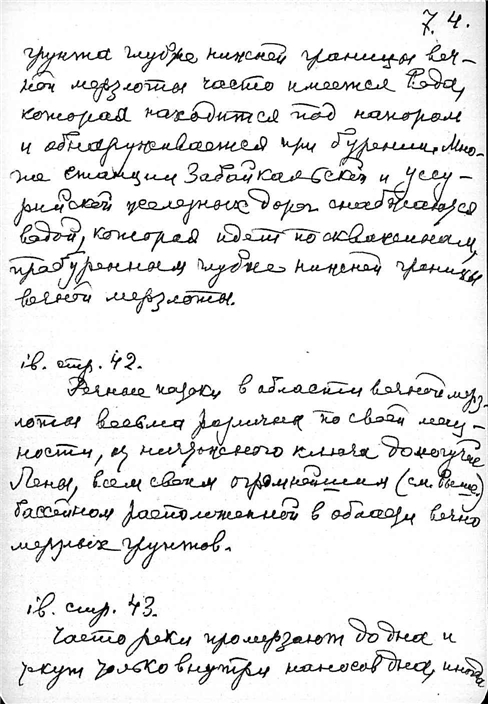 7.4.
грунта глубже нижней границы веч-
ной мерзлоты часто имеется вода,
которая находится под напором
и обнаруживается при бурении. Мно-
гие станции Забайкальской и Уссу-
рийской железных дорог снабжаются
водой, которая идет по скважинам,
пробуренным глубже нижней границы
вечной мерзлоты.
ів. стр. 42.
Речные в области вечной мерз-
лоты весьма различна по своей мощ-
ности, ключа до могучей
Лены, всем своим огромнейшим (см. выше)
бассейном расположенной в области вечно
мерзлых грунтов.
ів. стр. 43.
Часто реки промерзают до дна и
текут только внутри наносов дна, иногда